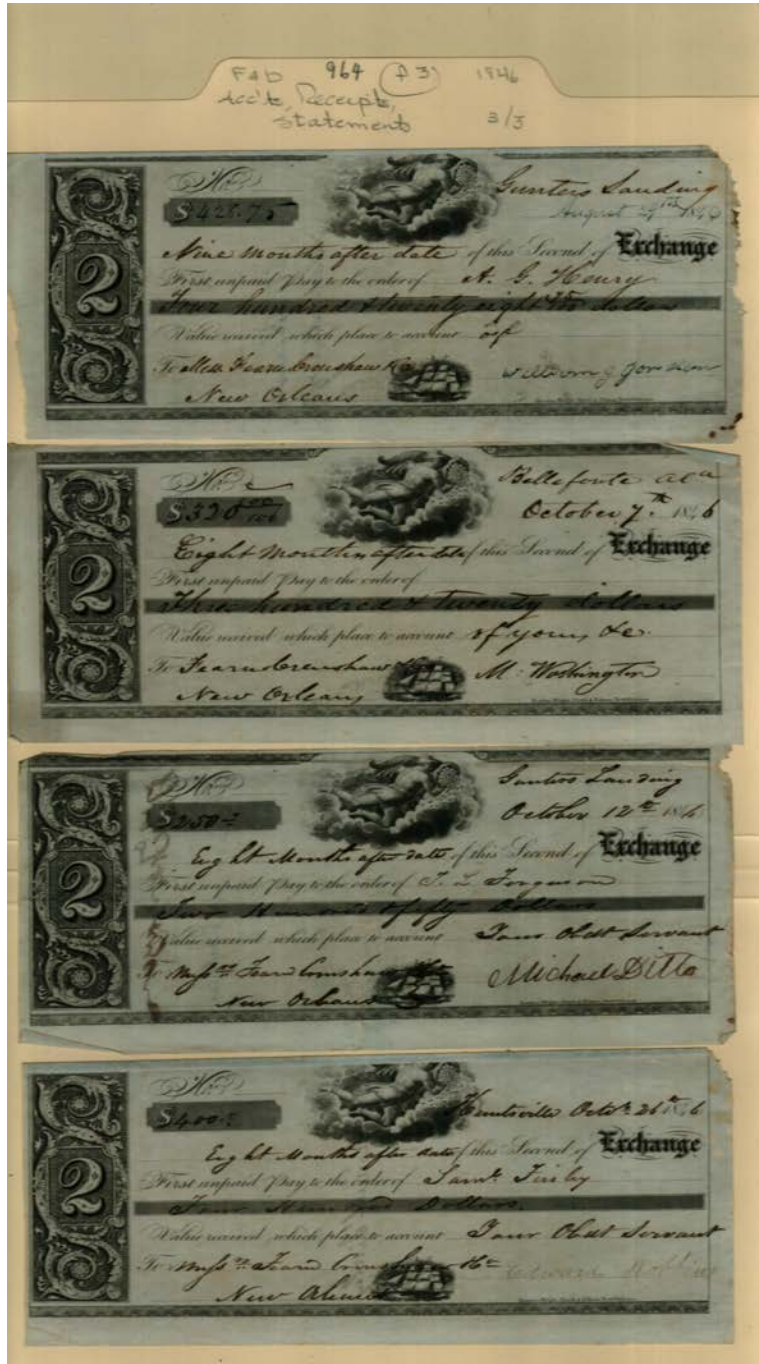 F&D 964 (P3) 1846
Acc'ts, Receipts,
Statements 3/3
No.
Gunters Landing
$428.75
August 29th 1846
2
Nine months after date of this Second of Exchange
First unpaid Pay to the order of A. G. Henry
Four hundred & twenty eight 75 dollars
Value received which place to account of
To Mess Fearn Crenshaw & Co
New Orleans
No.
Bellefonte Ala
$320 00/100
October 7th 1846
2
Eight months after date of this Second of Exchange
First unpaid Pay to the order of
Three hundred & twenty dollars
Value received which place to account of yours, &c.
To Fearn Crenshaw & Co
M. Washington
New Orleans
No.
Gunters Landing
$250
October 12th 1846
2
Eight Months after date of this Second of Exchange
First unpaid Pay to the order of T. L. Ferguson
Two Hundred & fifty Dollars
Value received which place to account Your Obdt Servant
To Messrs Fearn Crenshaw & Co
Michael Ditto
New Orleans
No.
$400
Huntsville Octr 26th 1846
2
Eight Months after date of this Second of Exchange
First unpaid Pay to the order of Saml.
Four Hundred Dollars.
Value received which place to account Your Obdt Servant
To Messrs Fearn Crenshaw & Co
Edward
New Orleans